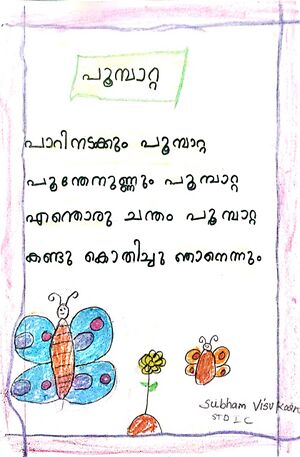 പൂമ്പാറ്റ
പാറിനടക്കും പൂമ്പാറ്റ
പൂന്തേനുണ്ണും പൂമ്പാറ്റ
എന്തൊരു ചന്തം പൂമ്പാറ്റ
കണ്ടു കൊതിച്ചു ഞാനെന്നും
Subham
STD I C